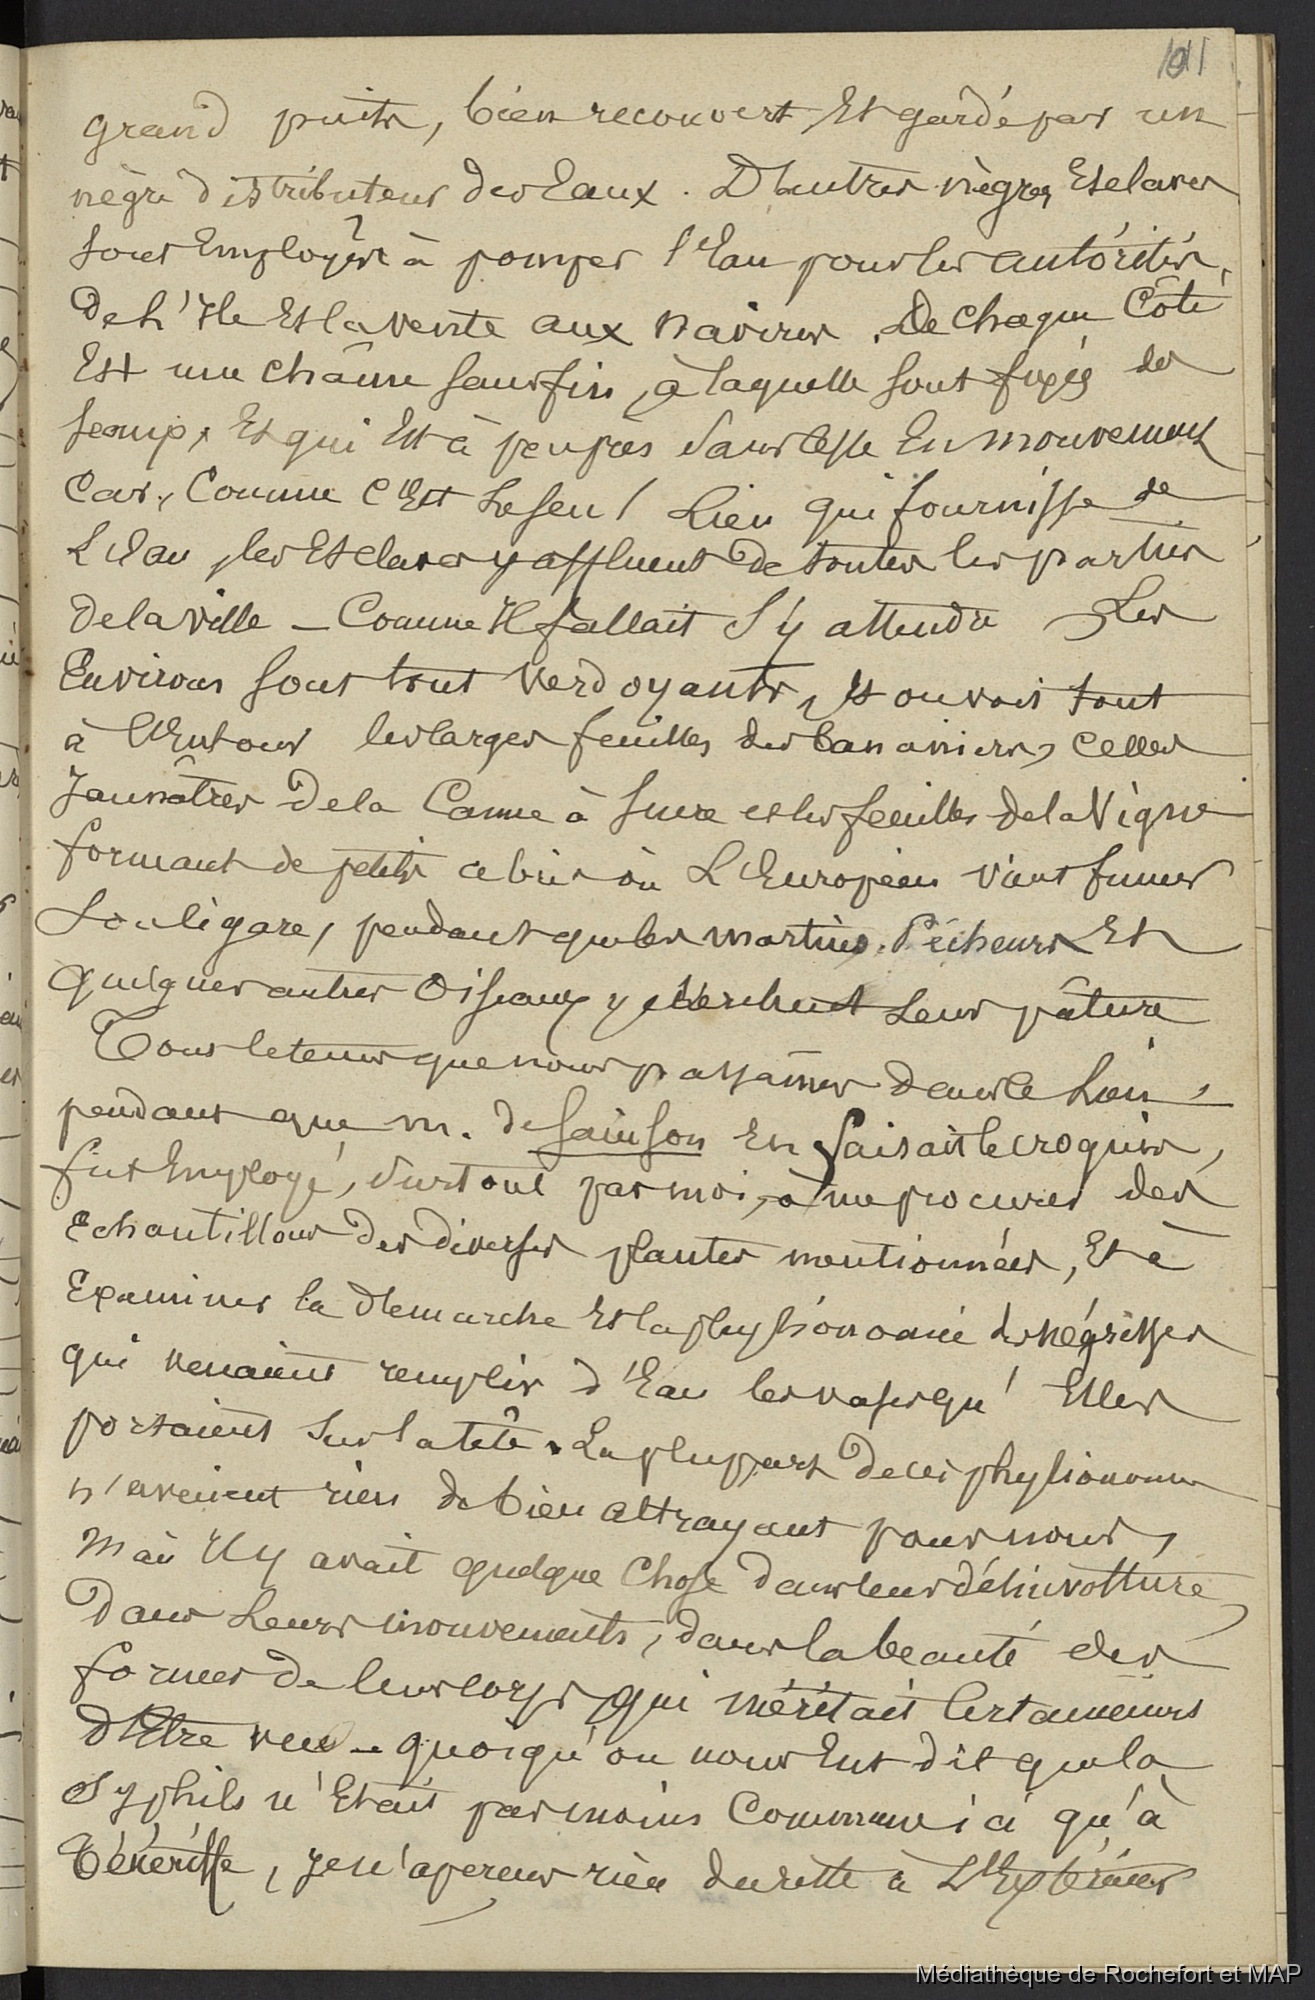 101
grand puits, bien recouvert Et gardé par un
nègre distributeur des Eaux. D'autres nègres Esclaves
sont Employés à pomper l'Eau pour les autorités
de l'Ile Et la vente aux navires. De chaque Côté
Est une chaîne sans fin, à laquelle sont fixés des
seaux, Et qui Est à peu près sans cesse En mouvement
Car, Comme c'Est Le seul Lieu qui fournisse de
L'Eau, les Esclaves y affluent de toutes les parties
de la ville — Comme Il fallait s'y attendre Les
Environs sont tout verdoyants, Et on voit tout
à l'Entour les larges feuilles des bananiers, celles
Jaunâtres de la Canne à sucre et les feuilles de la Vigne
formant de petits abris où L'Européen vient fumer
Son Cigare, pendant que les martins-Pêcheurs Et
quelques autres Oiseaux y cherchent Leur pâture
Tout le tems que nous passâmes dans ce Lieu,
pendant que m. de Sainson En faisait le croquis,
fut Employé, surtout par moi, à me procurer des
Echantillons des diverses plantes mentionnées, Et à
Examiner la démarche Et la physionomie des négresses
qui venaient remplir d'Eau les vases qu'Elles
portaient sur la tête. La plupart de ces physionomies
n'avaient rien de bien attrayant pour nous,
mais Il y avait quelque chose dans leur désinvolture,
dans Leurs mouvements, dans la beauté des
formes de leur corps, qui méritait Certainement
d'Etre vue — quoiqu'on nous Eut dit que la
Syphilis n'Etait pas moins Commune ici qu'à
Ténériffe, je n'aperçus rien de cette à L'Extérieur
Médiathèque de Rochefort et MAP